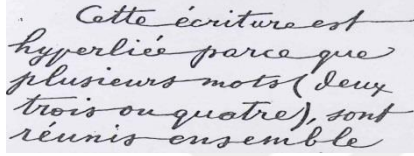 Cette écriture est
hyperliée parce que
plusieurs mots (deux
trois ou quatre), sont
réunis ensemble